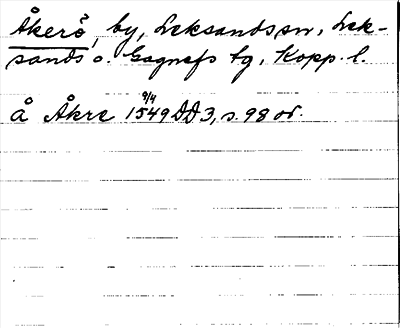 Åkerö, by, Leksands sn, Lek-
sands o. Gagnefs tg, Kopp. l.
å Åkre 9/4 1549 DD 3, s. 98 or.